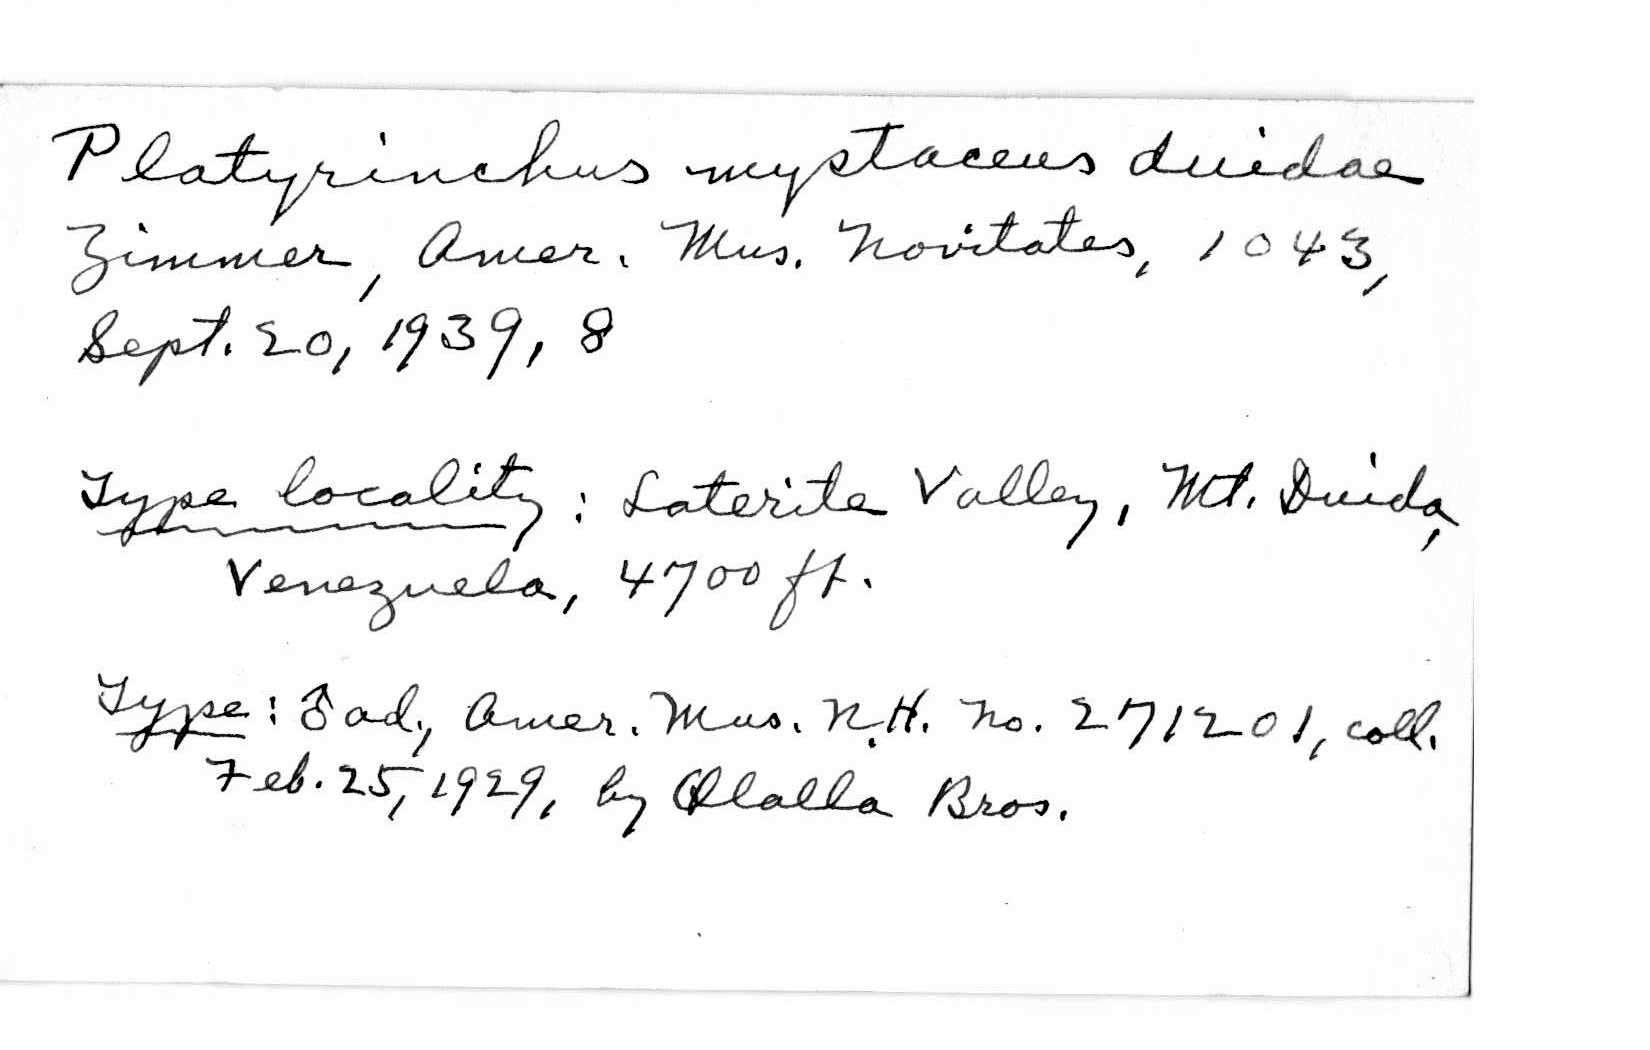 Platyrinchus mystaceus duidae
Zimmer, Amer. Mus. Novitates, 1043,
Sept. 20, 1939, 8
Type locality: Laterite Valley, Mt. Duida,
Venezuela, 4700 ft.
Type: ♂ ad., Amer. Mus. N.H. No. 271201, coll.
Feb. 25, 1929, by Olalla Bros.